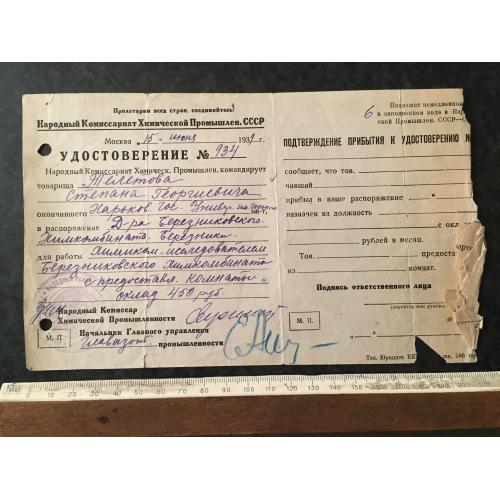 Пролетарии всех стран, соединяйтесь!
Народный Комиссариат Химической Промышлен. СССР
Москва 15 июня 1939 г.
УДОСТОВЕРЕНИЕ № 934
Народный Комиссариат Химическ. Промышлен. командирует
товарища Телетова
Степана Георгиевича
окончившего Харьков Гос. Универ. им.
в распоряжение Д-ра Березниковского
Химкомбината Березники.
для работы химиком-исследователем
Березниковского химкомбината
с предоставл. комнаты
оклад 450 руб.
Народный Комиссар
Химической Промышленности
М. П.
Начальник Главного управления
Главазот промышленности
Подлежит немедленно
6 в заполненном виде в Нар
ской Промышлен. СССР—
ПОДТВЕРЖДЕНИЕ ПРИБЫТИЯ К УДОСТОВЕРЕНИЮ №
сообщает, что тов.
чивший
прибыл в наше распоряжение " "
назначен на должность
с окл
рублей в месяц.
Тов. предоста
из комнат.
Подпись ответственного лица
М. П.
Тип. Юриздата 586
0 10 20 30 40 50 60 70 80 90 100 110 120 130 140 150 160 170 180 190 200